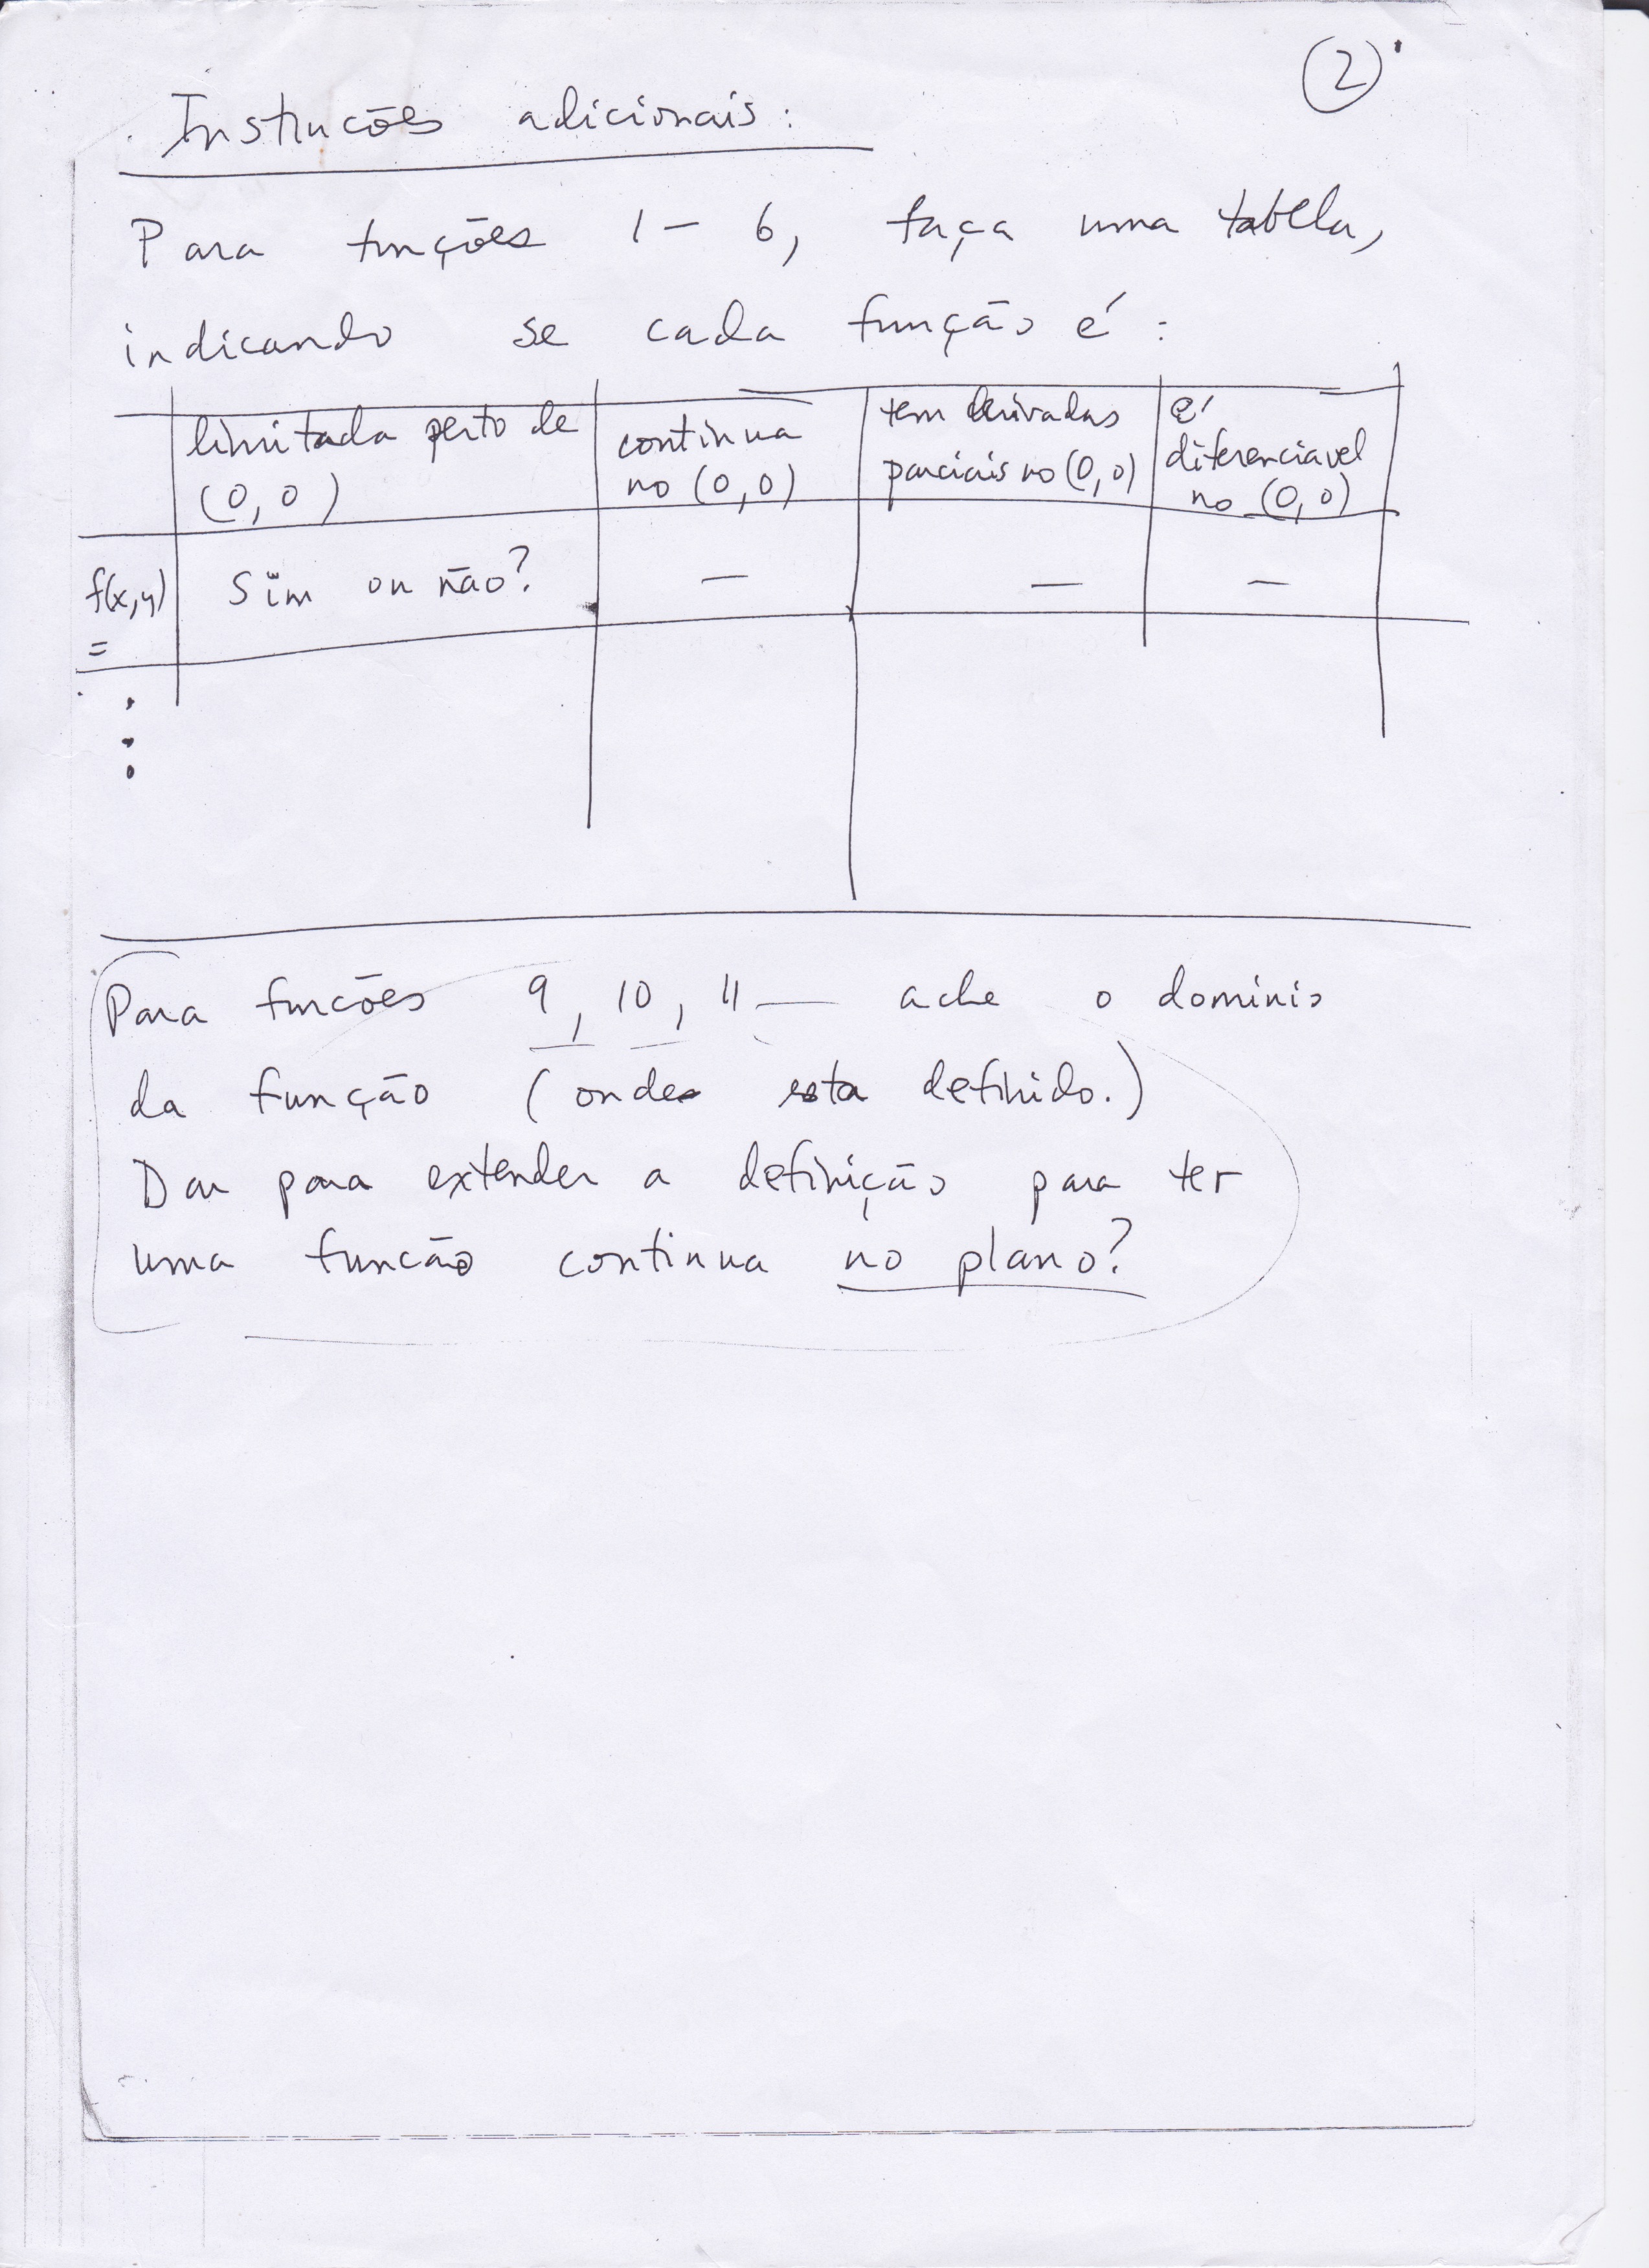 2
Instrucões adicionais:
Para funções 1 - 6, faça uma tabela,
indicando se cada função é:
limitada perto de (0,0)
continua no (0,0)
tem derivadas parciais no (0,0)
é diferenciavel no (0,0)
f(x,y) =
Sim ou não? — — —
Para funcões 9, 10, 11 — ache o dominio
da função (onde esta definido.)
Dar para extender a definição para ter
uma funcão continua no plano?